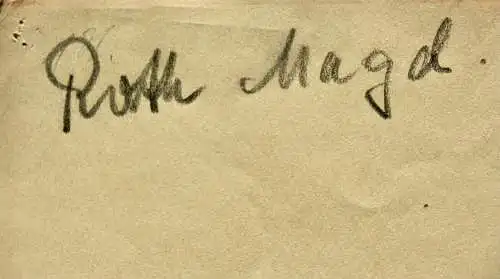 Roth Magd.